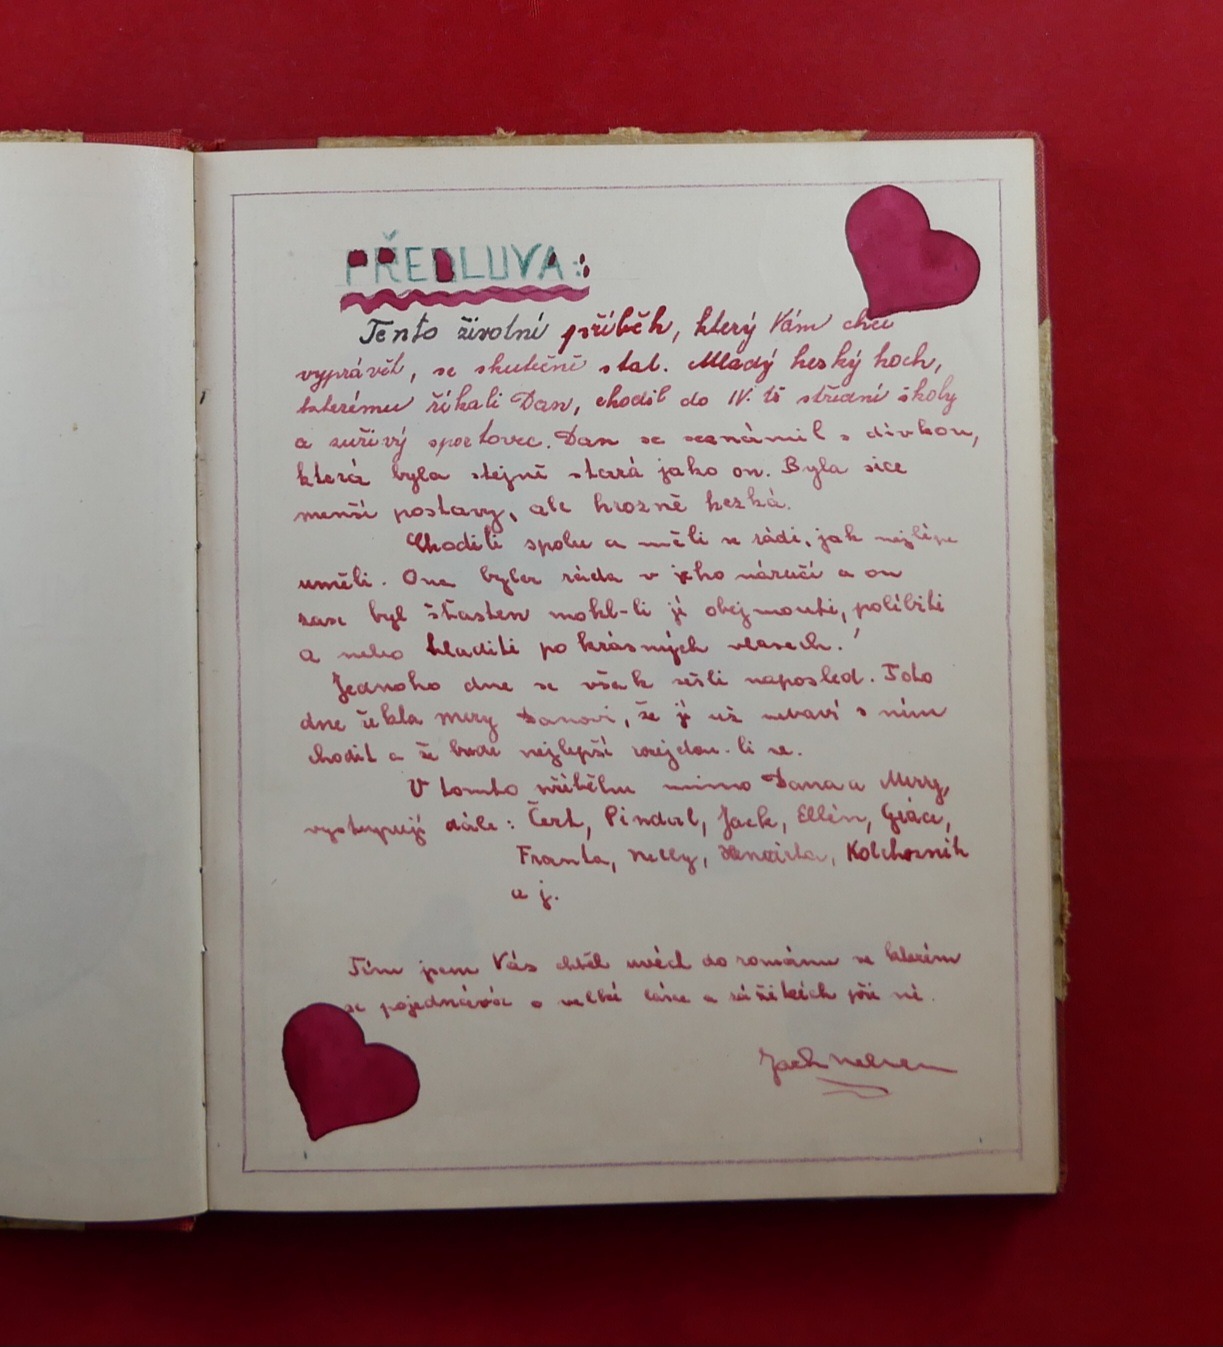 PŘEDLUVA:
Tento životní příběh, který Vám chci
vyprávět, se skutečně stal. Mladý heský hoch,
kterému říkali Dan, chodil do IV. tř střední školy
a zuřivý sportovec. Dan se seznámil s dívkou,
která byla stejně stará jako on. Byla sice
menší postavy, ale hrozně hezká.
Chodili spolu a měli se rádi, jak nejlépe
uměli. Ona byla ráda v jeho náručí a on
zase byl šťasten mohl-li jí obejmouti, políbiti
a nebo hladiti po krásných vlasech.
Jednoho dne se však sešli naposled. Toho
dne řekla Mery Danovi, že jí už nebaví s ním
chodit a že bude nejlepší rozejdou-li se.
V tomto příběhu mimo Dana a Mery,
vystupují dále: Čert, Pindal, Jack, Ellén, Grác,
Franta, Nelly, Kolchozník
a j.
Tím jsem Vás chtěl uvéct do románu ve kterém
se pojednává o velké lásce a zážitkách při ní.
Jack